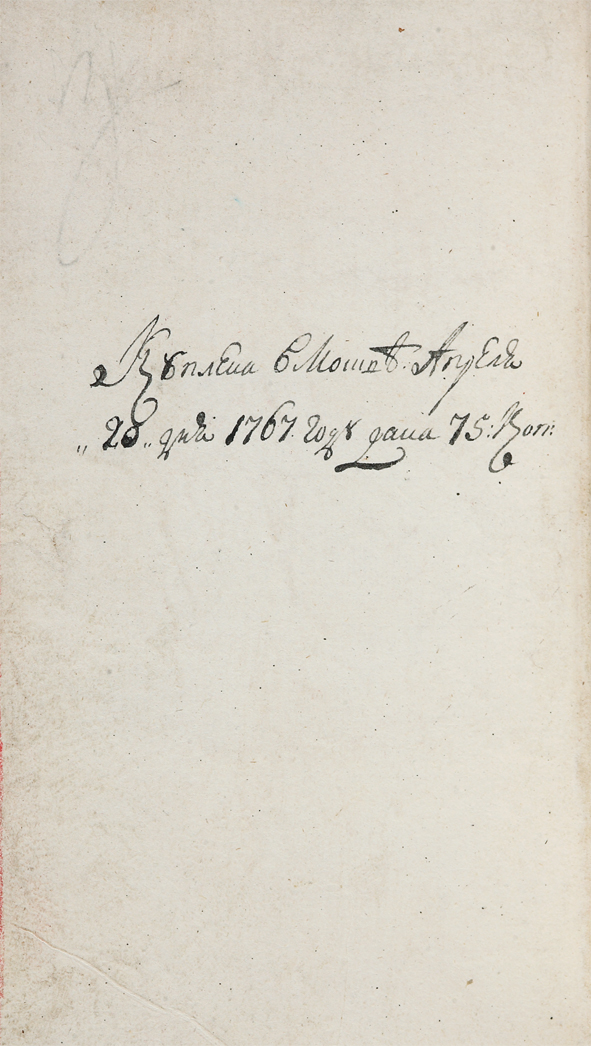 Куплена в Москвѣ. Апреля
„28„ дня 1767. году дана 75: Коп: